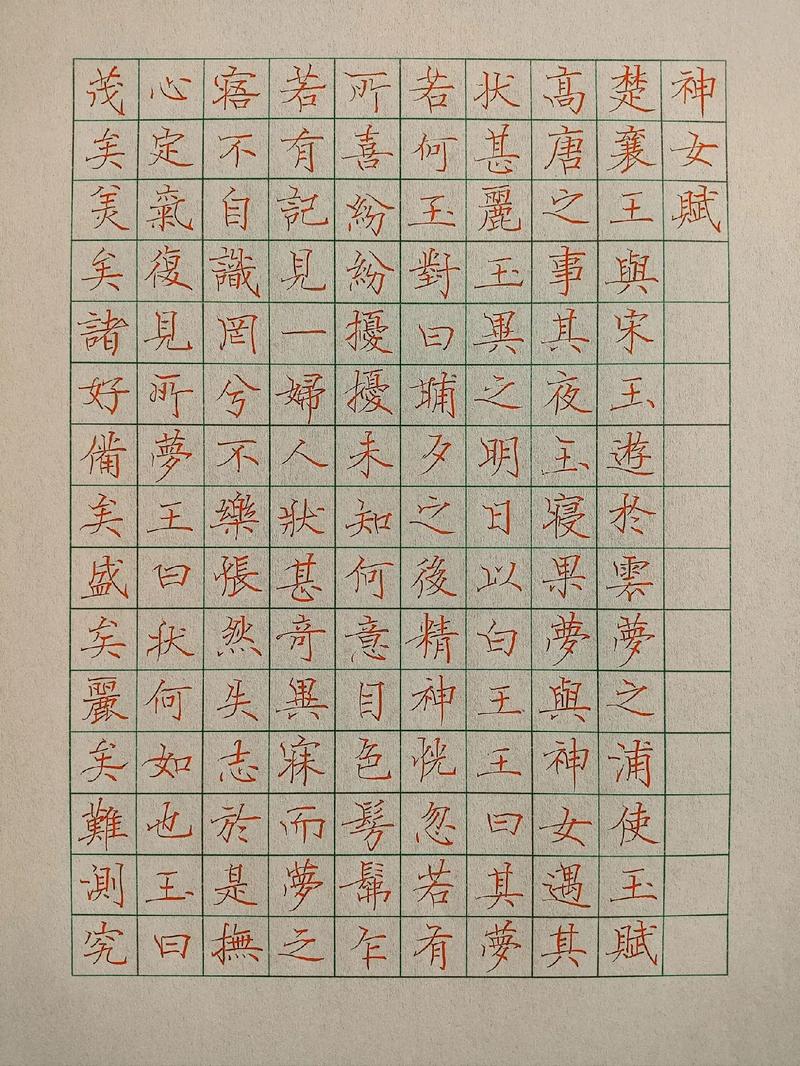 神女賦
楚襄王與宋玉遊於雲夢之浦使玉賦
高唐之事其夜玉寢果夢與神女遇其
状甚麗玉異之明日以白王王曰其夢
若何玉對曰晡夕之後精神恍忽若有
所喜紛紛擾擾未知何意目色髣髴乍
若有記見一婦人狀甚奇異寐而夢之
寤不自識罔兮不樂悵然失志於是撫
心定氣復見所夢王曰状何如也玉曰
茂矣美矣諸好備矣盛矣麗矣難測究